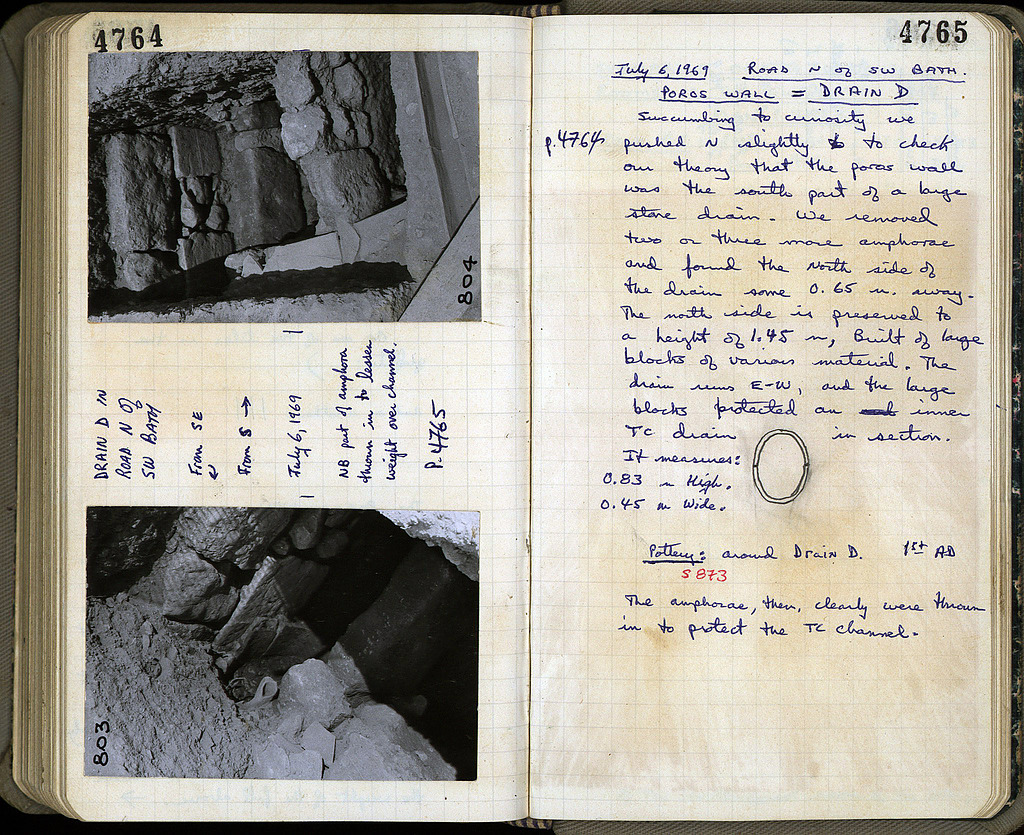 4764
804
DRAIN D IN
ROAD N OF
SW BATH
From SE
↙
From S →
July 6, 1969
NB part of amphora
thrown in to lessen
weight over channel.
P. 4765
803
4765
July 6, 1969 ROAD N of SW BATH.
POROS WALL = DRAIN D
Succumbing to curiosity we
p.4764 pushed N slightly to to check
our theory that the poros wall
was the south part of a large
stone drain. We removed
two or three more amphorae
and found the North side of
the drain some 0.65 m. away.
The north side is preserved to
a height of 1.45 m, Built of large
blocks of various material. The
drain runs E-W, and the large
blocks protected an inner
TC drain in section.
It measures:
0.83 m High.
0.45 m Wide.
Pottery: around Drain D. 1st AD
S 873
The amphorae, then, clearly were thrown
in to protect the TC channel.